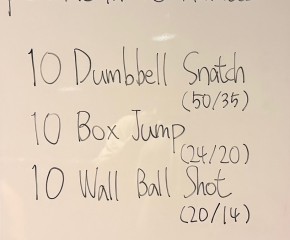 10 Dumbbell Snatch
(50/35)
10 Box Jump
(24/20)
10 Wall Ball Shot
(20/14)